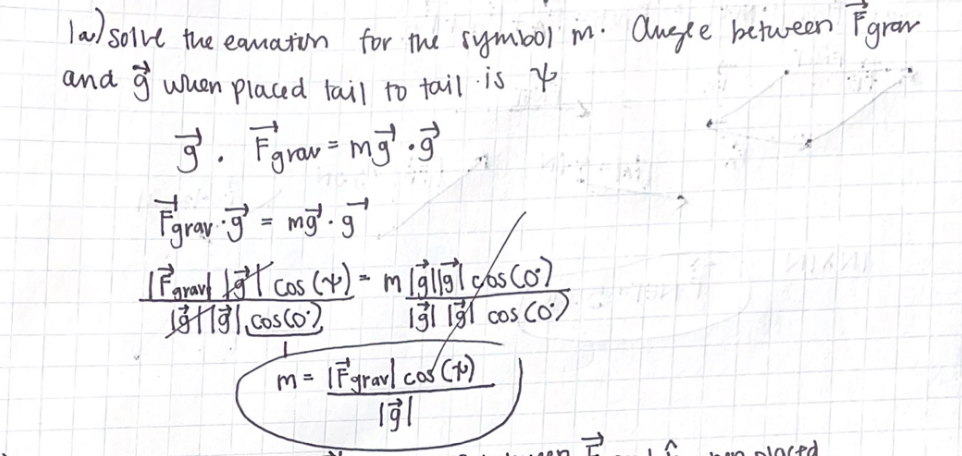 1a) solve the equation for the symbol m. Angle between F⃗grav
and g⃗ when placed tail to tail is ψ
g⃗ · F⃗grav = mg⃗ · g⃗
F⃗grav · g⃗ = mg⃗ · g⃗
|F⃗grav| |g⃗| cos(ψ) = m |g⃗||g⃗| cos(0°)
|g⃗||g⃗| cos(0°) |g⃗| |g⃗| cos(0°)
1
m = |F⃗grav| cos(ψ)
|g⃗|
between F⃗ when placed